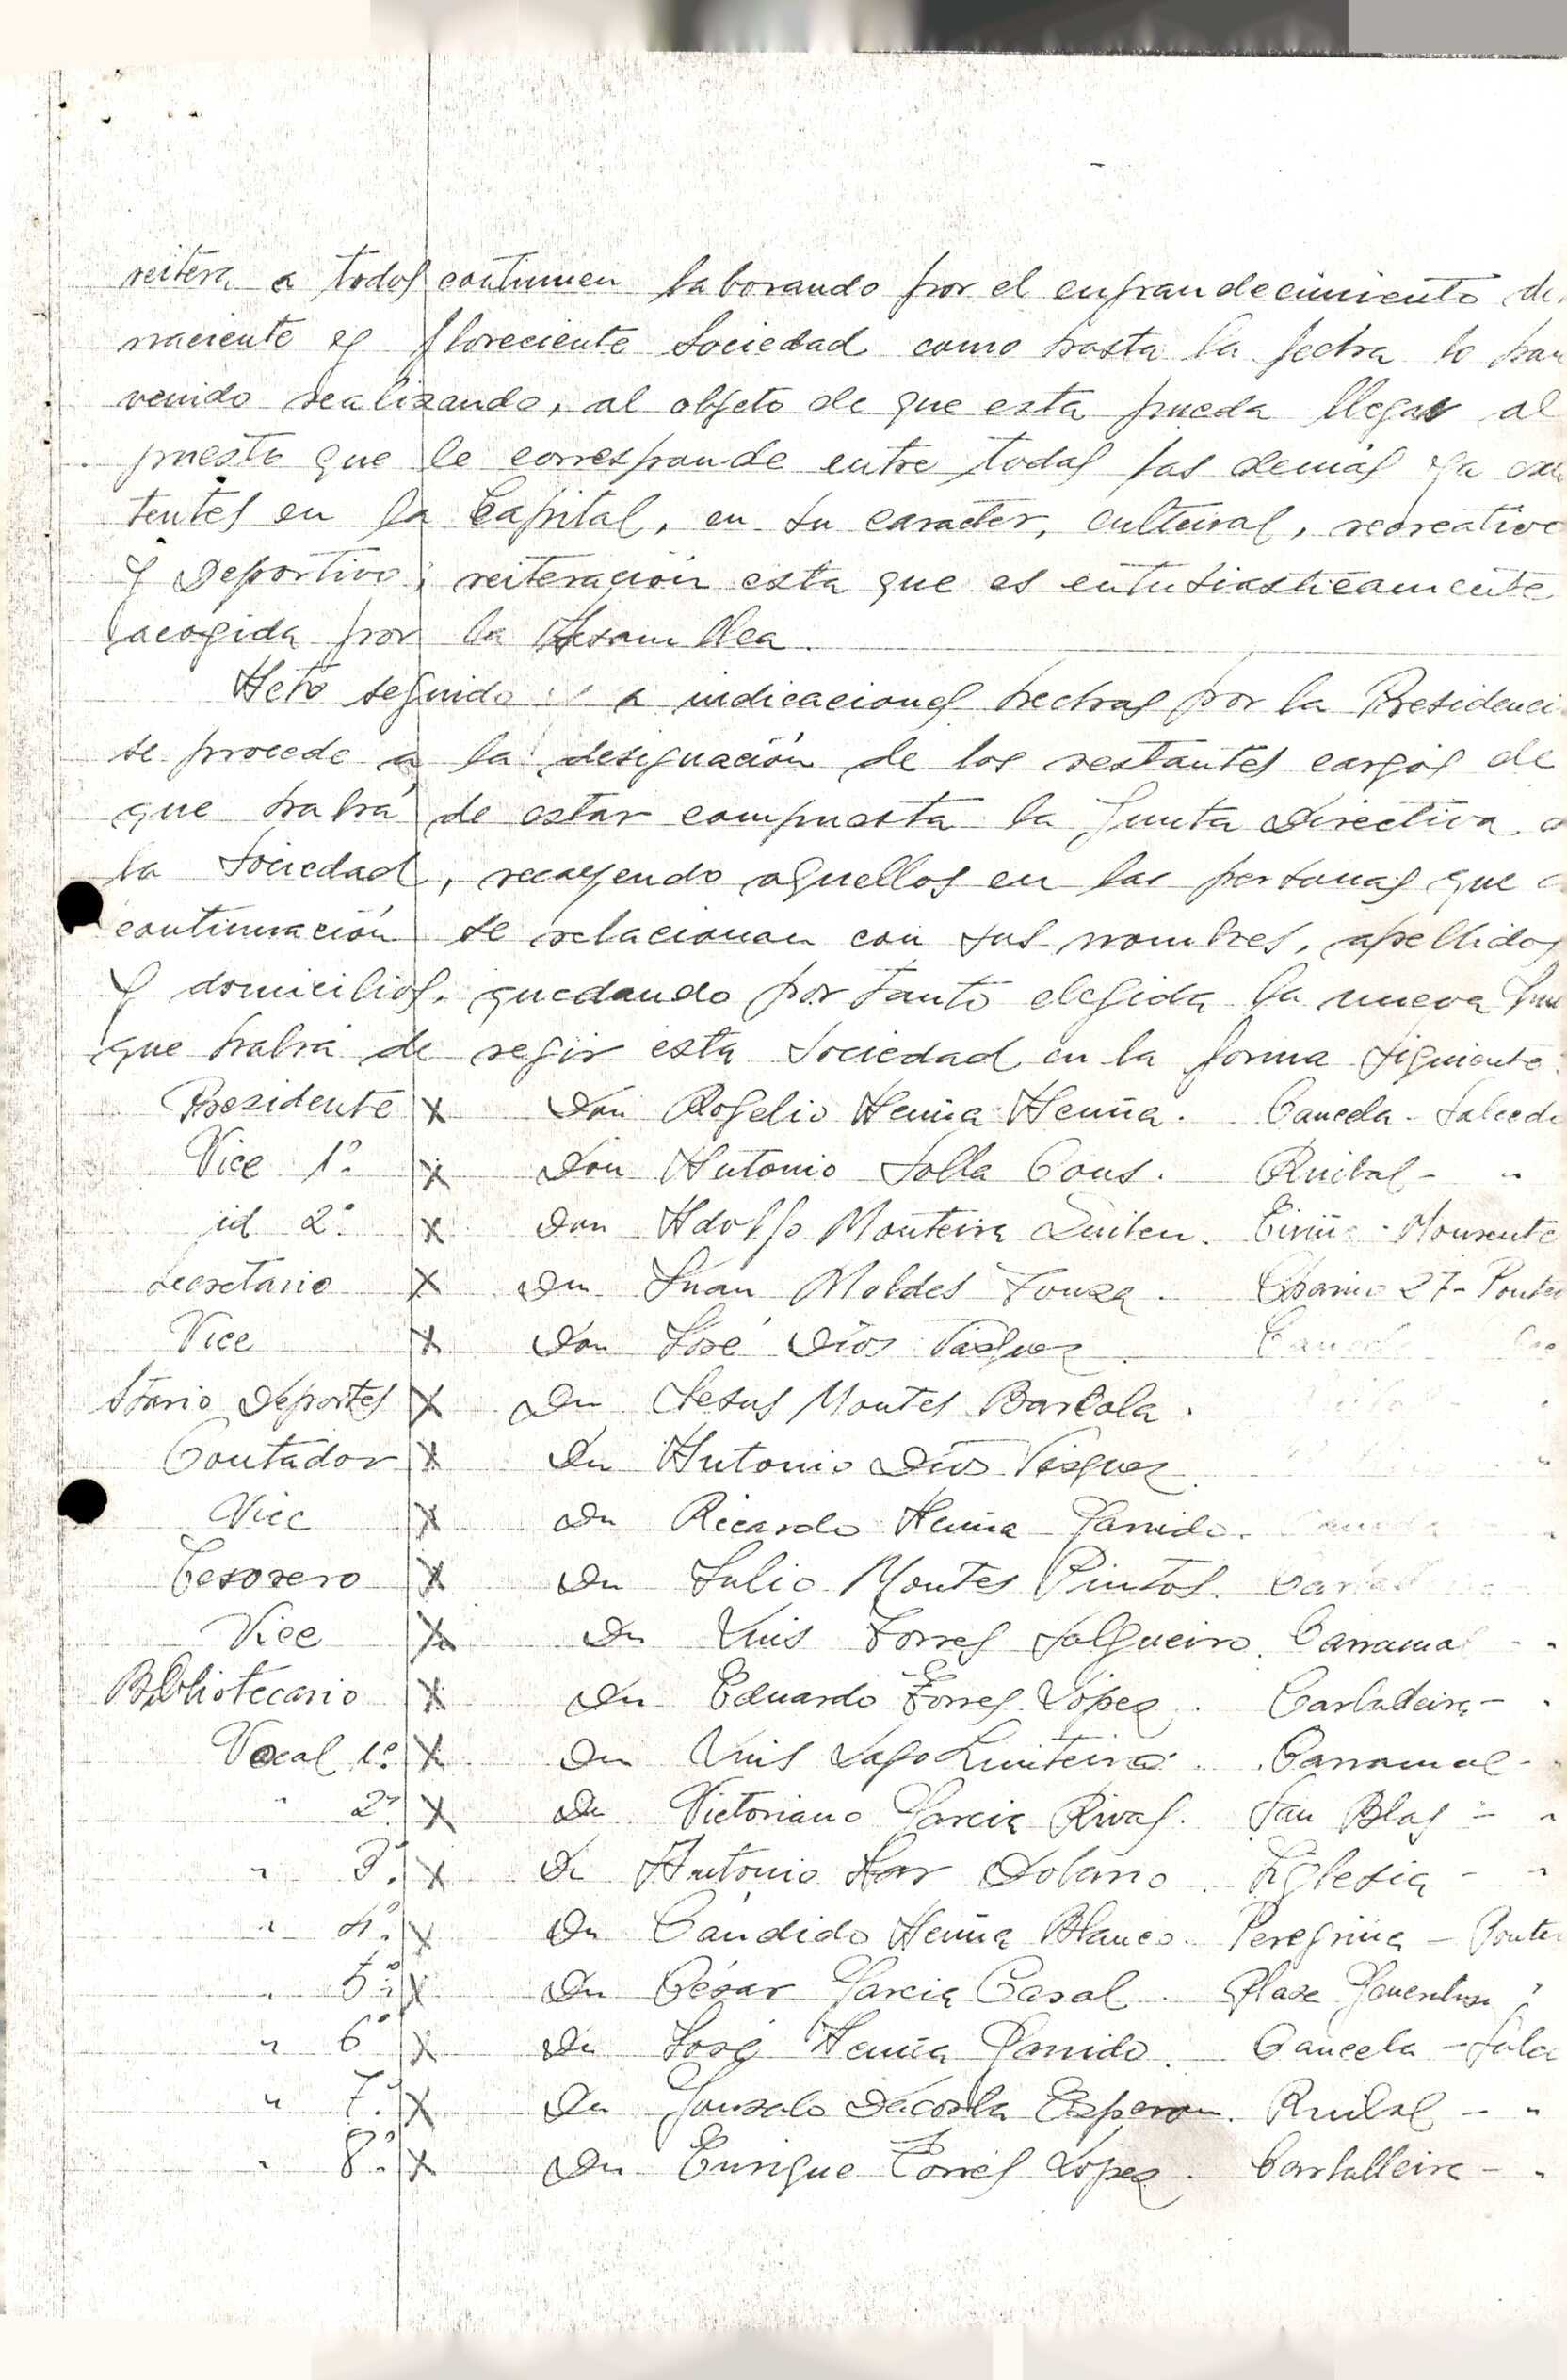 reitera a todos continuen laborando por el engrandecimiento de
naciente y floreciente Sociedad como hasta la fecha lo han
venido realizando, al objeto de que esta pueda llegar al
puesto que le corresponde entre todas las demás ya
tentes en la Capital, en su caracter, cultural, recreativo
y Deportivo, reiteración esta que es entusiasticamente
acogida por la Asamblea.
Acto seguido a indicaciones hechas por la Presidenci
se procede a la designación de los restantes cargos de
que habrá de estar compuesta la Junta Directiva
la Sociedad, recayendo aquellos en las personas que
continuación se relacionan con sus nombres, apellidos
y domicilios, quedando por tanto elegida la nueva Jun
que habrá de regir esta Sociedad en la forma siguiente.
Presidente X Don Rogelio Acuña Acuña. Cancela - Salcedo
Vice 1º. X Don Antonio Solla Cons. Ruibal - "
id 2º X Don Adolfo Monteira - Mourente
Secretario X Dn Juan Moldes Souza. 27 - Ponte
Vice X Don José Dios Vasquez
Stario Deportes X Dn Jesus Montes Barcala.
Contador X Dn Antonio Dios Vasquez
Vice X Dn Ricardo Acuña Garrido.
Tesorero X Dn Julio Montes Pintos.
Vice X Dn Luis Torres Salgueiro. Carramal - "
Bibliotecario X Dn Eduardo Torres Lopez. Carballeira - "
Vocal 1º. X Dn Luis Lago Quinteiro. Carramal -
" 2º. X Dn Victoriano Garcia Rivas. San Blas - "
" 3º. X Dn Antonio Solano. Iglesia - "
" 4º. X Dn Cándido Acuña Blanco. Peregrina - Ponte
" 5º. X Dn César Garcia Casal. Plaza "
" 6º X Dn José Acuña Garrido. Cancela - Salce
" 7º. X Dn Gonzalo Dacosta Esperon. Ruibal - "
" 8º. X Dn Enrique Torres Lopez. Carballeira - "